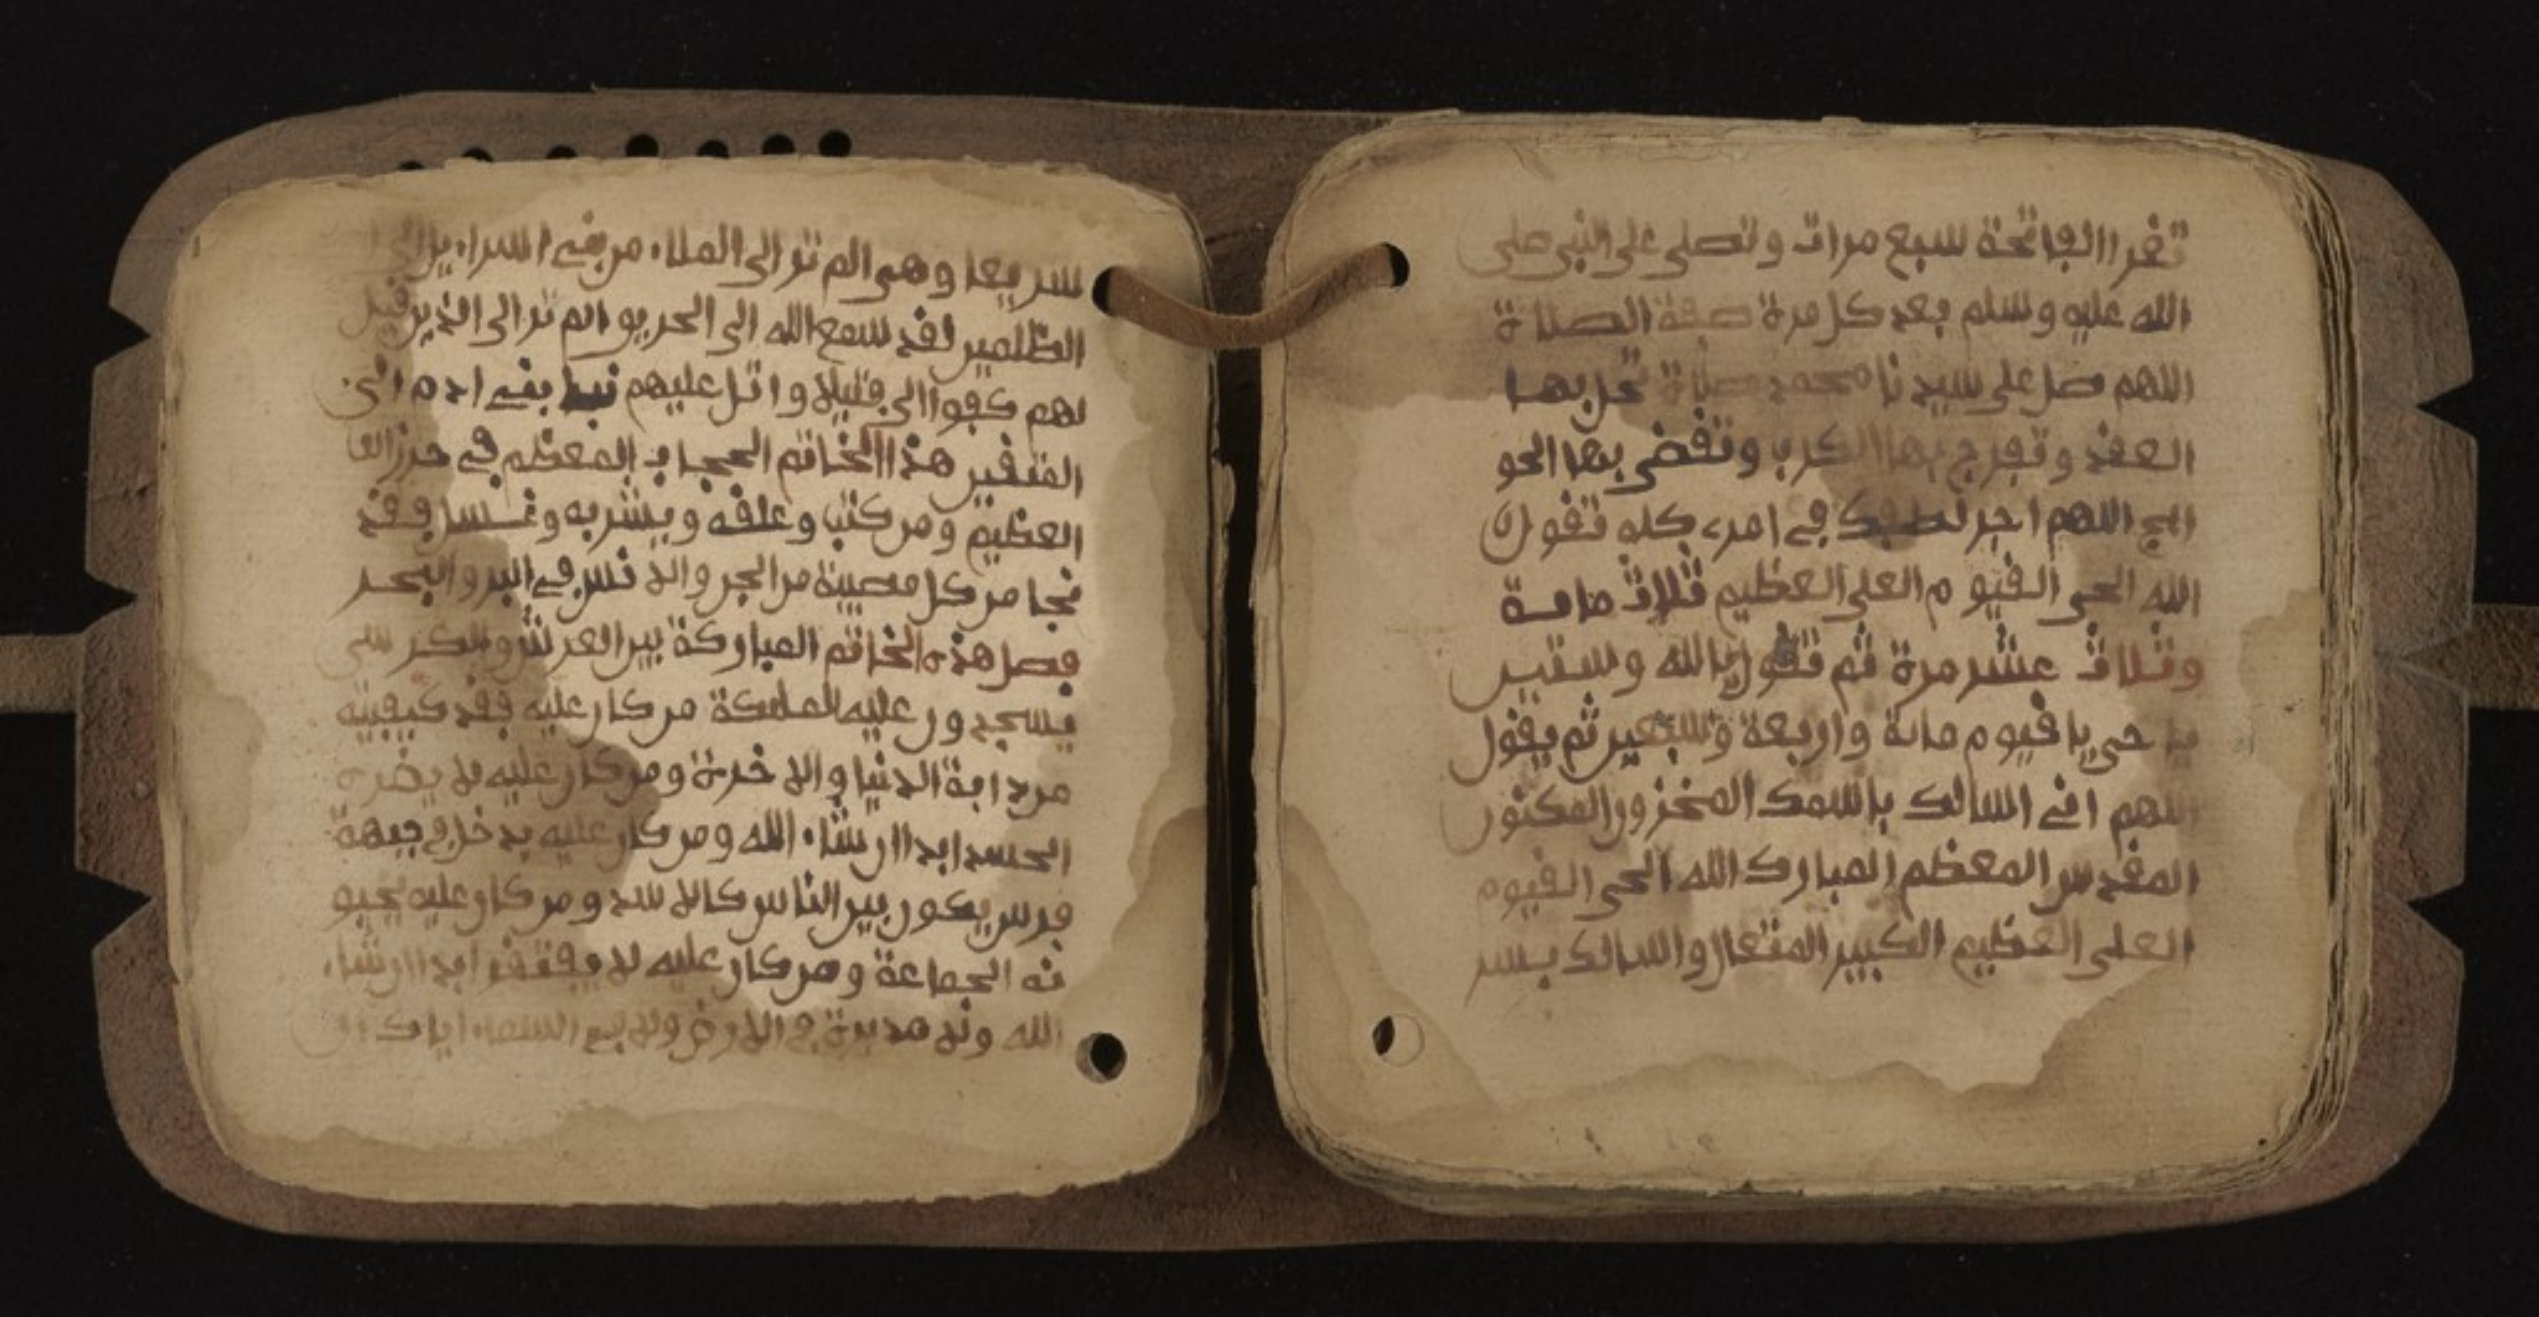 تقرا الفاتحة سبع مرات وتصلى على النبى صلى
الله عليه وسلم بعد كل مرة صفة الصلاة
اللهم صل على سيدنا محمد صلاة تحل بها
العقد وتفرج بها الكرب وتقضى بها الحو
ايج اللهم اجر لطفك في امرى كله تقول
الله الحى القيوم العلى العظيم ثلاث ماىة
وثلاث عشر مرة ثم تقول يالله وستين
يا حى يا قيوم مائة واربعة وسبعين ثم يقول
اللهم انى اسالك باسمك المخزون المكنون
المقدس المعظم المبارك الله الحى القيوم
العلى العظيم الكبير المتعال واسالك بسر
سريعا وهى الم تر الى الملاء من بنى اسراءيل الى
الظلمين لقد سمع الله الى الحريق والم تر الى الذين قيل
لهم كفوا الى فتيلا واتل عليهم نبا بنى ادم الى
المتقين هذا الخاتم الحجاب المعظم في حرز
العظيم ومن كتب وعلقه ويشربه وغسل فقد
نجا من كل مصيبة من الجن والانس في البر والبحر
فصل هذه الخاتم المباركة بين العرش والكرسى
يسجدون عليه الملىكة من كان عليه فقد كيفيته
من دابة الدنيا والاخرة ومن كان عليه لا يضره
الحسد ابدا ان شاء الله ومن كان عليه يدخل في جبهة
فرس يكون بين الناس كالاسد ومن كان عليه يحبو
نه الجماعة ومن كان عليه لا يفتقر ابدا ان شاء
الله ولا في الارض ولا في السماء اياك